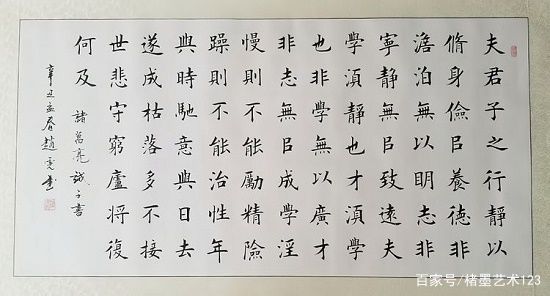 夫君子之行靜以
脩身儉㠯養德非
澹泊無以明志非
寧靜無㠯致遠夫
學須靜也才須學
也非學無以廣才
非志無㠯成學淫
慢則不能勵精險
躁則不能治性年
與時馳意與日去
遂成枯落多不接
世悲守窮廬將復
何及
諸葛亮誡子書
辛丑孟春趙書
百家号/楮墨艺术123